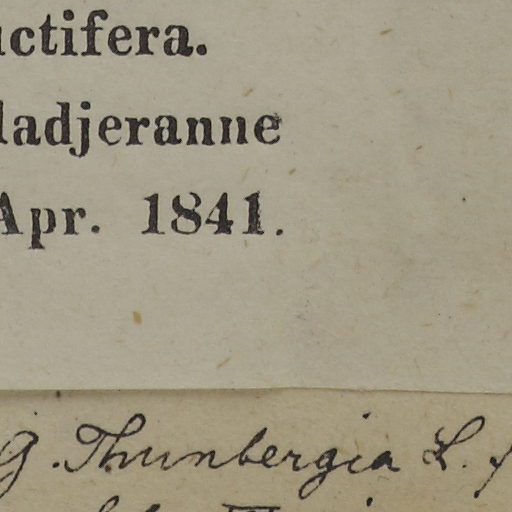 ctifera.
ladjeranne
Apr. 1841.
G. Thunbergia L. f